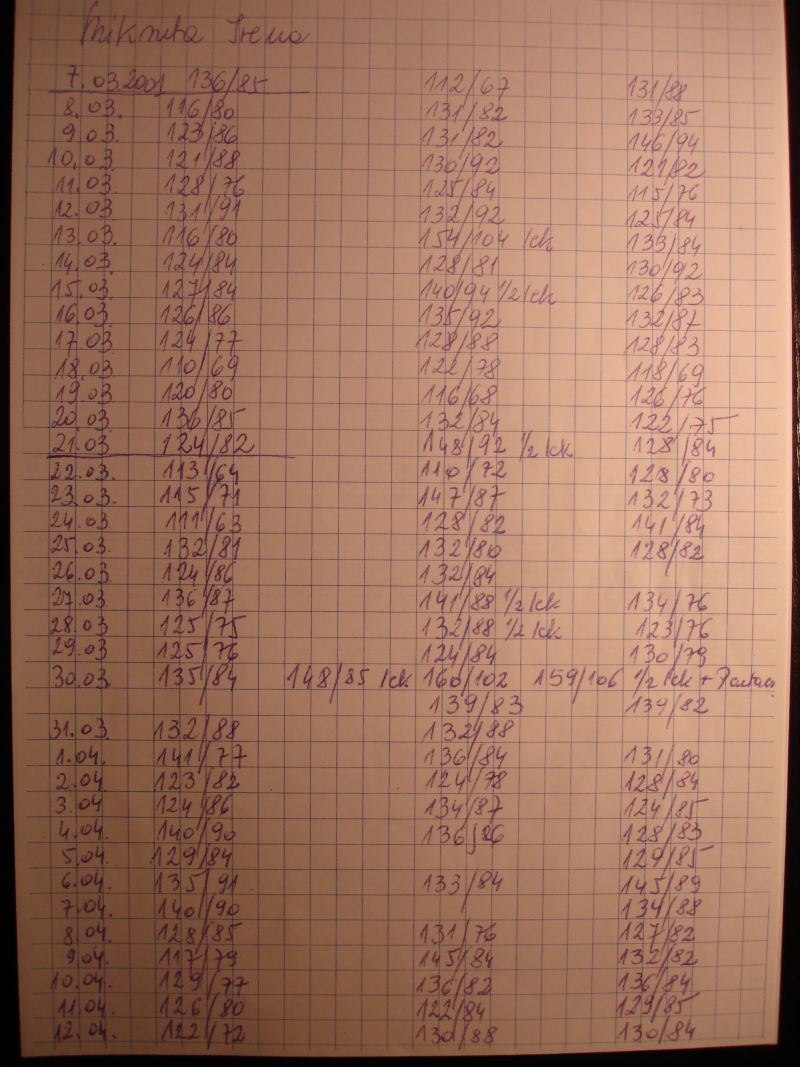 7.03.2001 136/85 112/67 131/88
8.03. 116/80 131/82 133/85
9.03. 123/86 131/82 146/94
10.03. 121/88 130/92 121/82
11.03. 128/76 125/84 115/76
12.03 131/91 132/92 125/84
13.03. 116/80 154/104 /ck 133/84
14.03. 124/84 128/81 130/92
15.03. 127/84 140/94 1/2 /ck 126/83
16.03. 126/86 135/92 132/87
17.03 124/77 128/88 128/83
18.03. 110/69 122/78 118/69
19.03 120/80 116/68 126/76
20.03. 136/85 132/84 122/75
21.03 124/82 148/92 1/2 /ck 128/84
22.03. 113/64 110/72 128/80
23.03. 115/71 147/87 132/73
24.03 111/63 128/82 141/84
25.03. 132/81 132/80 128/82
26.03. 124/86 132/84
27.03 136/87 141/88 1/2 /ck 134/76
28.03 125/75 132/88 1/2 /ck 123/76
29.03 125/76 124/84 130/79
30.03. 135/84 148/85 /ck 160/102 159/106 1/2 /ck +
139/83 139/82
31.03 132/88 132/88
1.04. 141/77 136/84 131/80
2.04. 123/82 124/78 128/84
3.04 124/86 134/87 124/85
4.04. 140/90 136/ 128/83
5.04. 129/84 129/85
6.04. 135/91 133/84 145/89
7.04. 140/90 134/88
8.04. 128/85 131/76 127/82
9.04. 117/79 145/84 132/82
10.04. 129/77 136/82 136/84
11.04. 126/80 122/84 129/85
12.04. 122/72 130/88 130/84